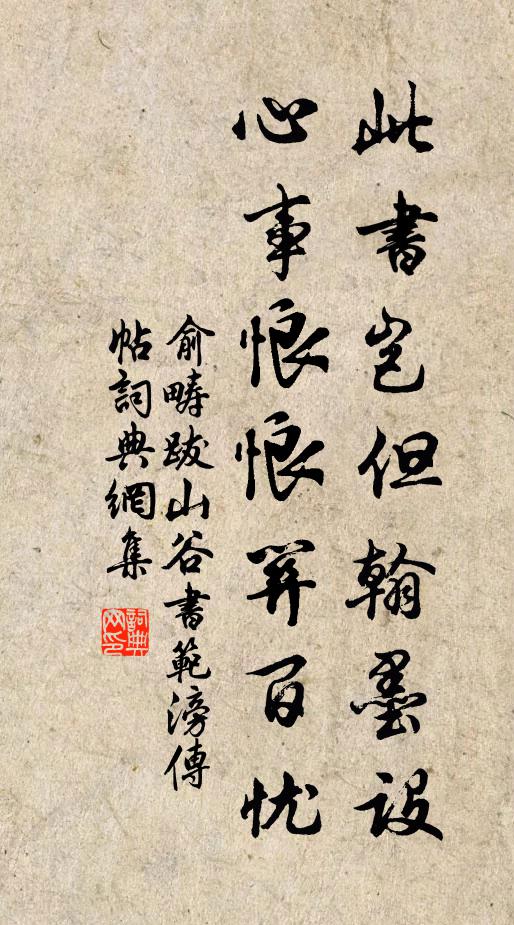 此書豈但翰墨設
心事悢悢筭百忧
俞畴跋山谷書範滂傳
帖詞典網集
詞典网印